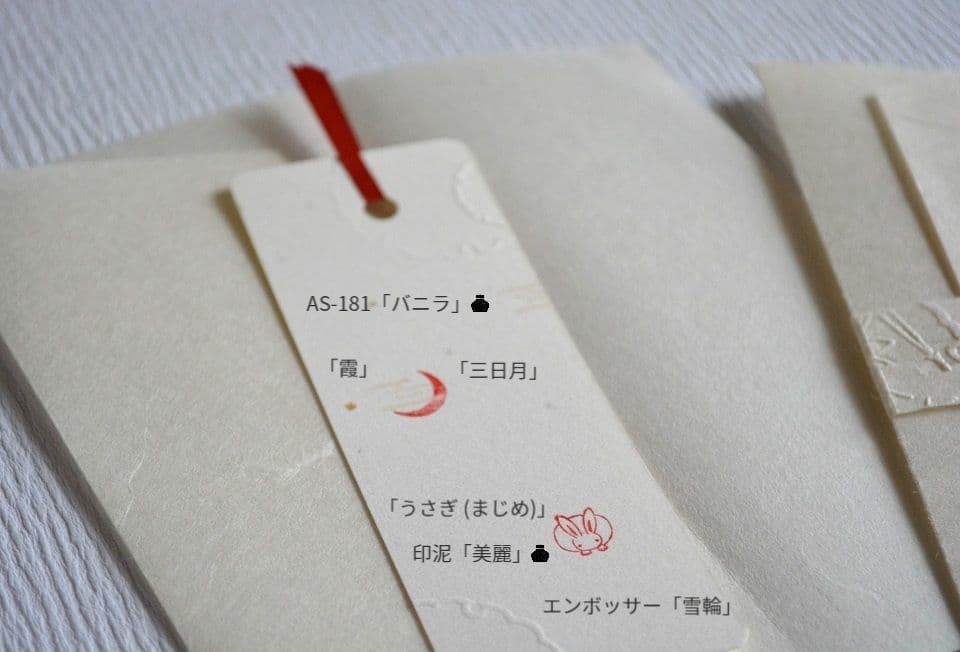 AS-181「バニラ」
「霞」
「三日月」
「うさぎ (まじめ)」
印泥「美麗」
エンボッサー「雪輪」